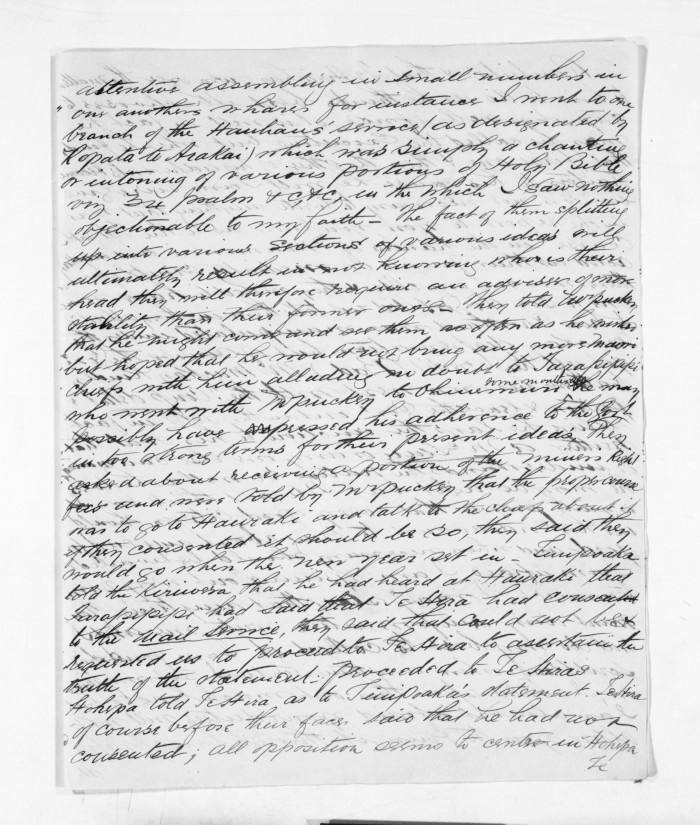 attentive assembling in small numbers in
one anothers whares for instance I went to one
branch of the Hauhaus service (as designated by
Ropata te Arakai) which was simply a chanting
or intoning of various portions of Holy Bible
viz 34 psalm &c &c, in the which I saw nothing
objectionable to my faith - The fact of them splitting
up into various sections of various ideas will
ultimately result in not knowing who is their
head they will therefore require an adviser of more
stability than their former ones - They told Mr Puckey
that he might come and see them as often as he wished
but hoped that he would not bring any more Maori
chiefs with him alluding no doubt to Tarapipipi
who went with Mr Puckey to Ohinemuri some months he may
possibly have expressed his adherence to the Govt
in too strong terms for their present ideas. They
asked about receiving a portion of the Miners Right
fees and were told by Mr Puckey that the proper course
was to go to Hauraki and talk to the chiefs about it
if they consented it should be so, they said they
would go when the new year set in - Timipoaka
told the Kiriwera that he had heard at Hauraki that
Tarapipipi had said that Te Hira had consented
to the Mail Service, they said that could not be &
requested us to proceed to Te Hira to ascertain the
truth of the statement. proceeded to Te Hiras
Hohepa told Te Hira as to Timipoaka's statement. Te Hira
of course before their faces said that he had not
consented; all opposition seems to centre in Hohepa
Te